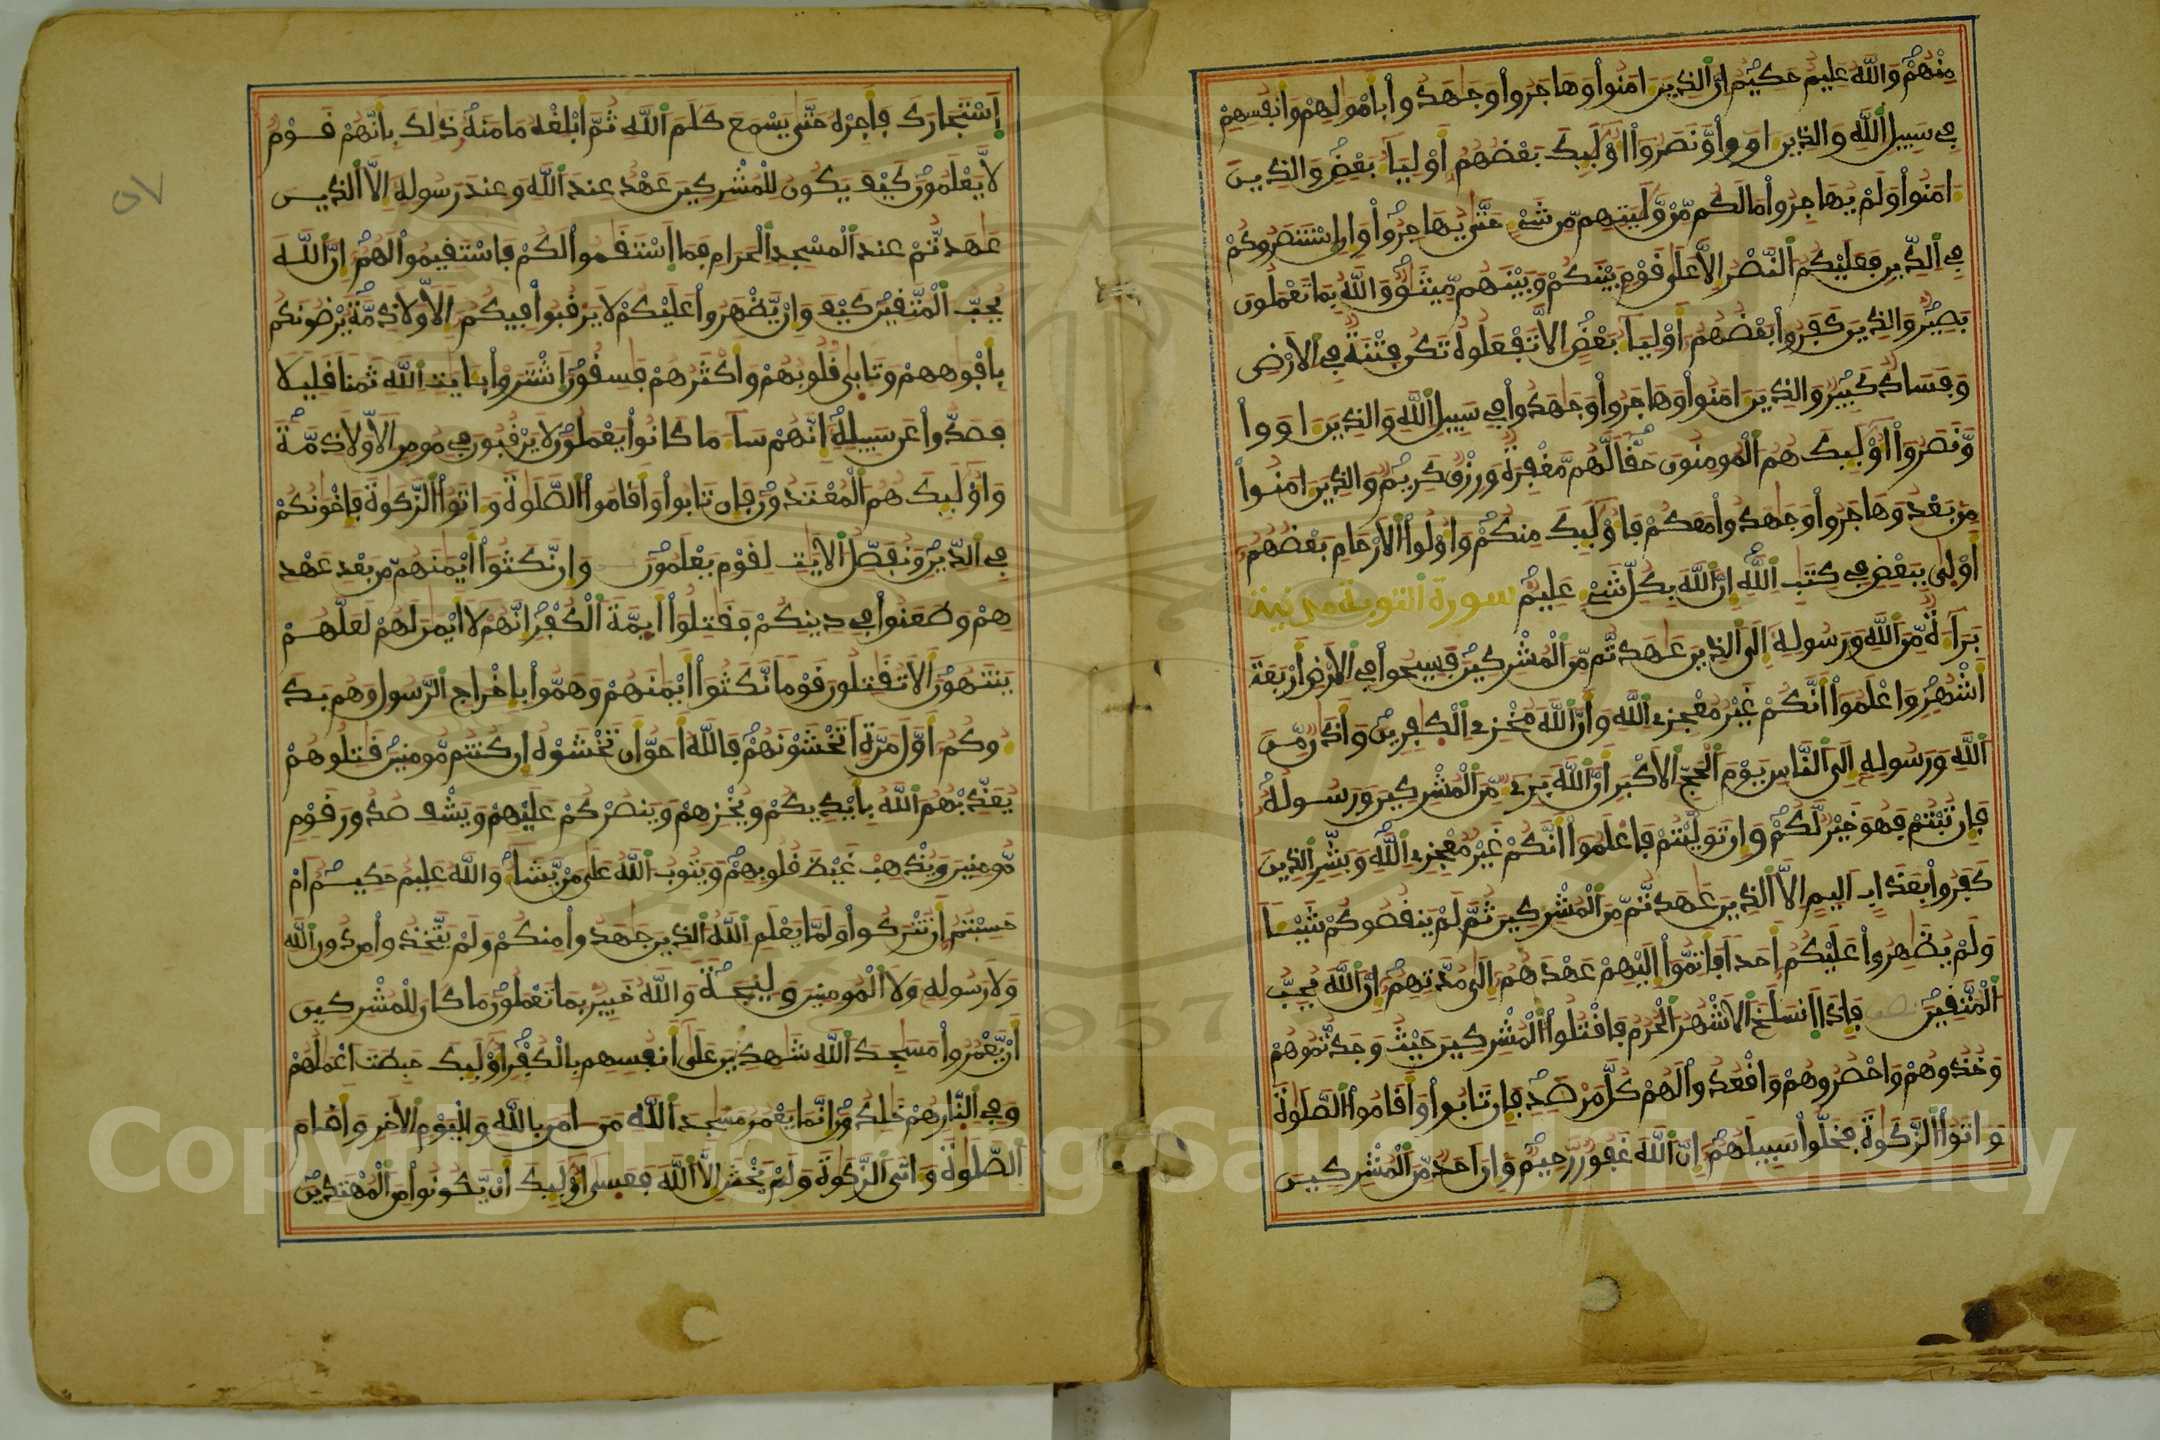 مِنْهُمْ وَاللَّهُ عَلِيمٌ حَكِيمٌ إِنَّ الذِينَ ءَامَنُوا وَهَاجَرُوا وَجَٰهَدُوا بِأَمْوَٰلِهِمْ وَأَنفُسِهِمْ
فِي سَبِيلِ اللَّهِ وَالذِينَ ءَاوَوا وَّنَصَرُوا أُوْلَٰئِكَ بَعْضُهُمْ أَوْلِيَاءُ بَعْضٍ وَالذِينَ
ءَامَنُوا وَلَمْ يُهَاجِرُوا مَا لَكُم مِّن وَّلَٰيَتِهِم مِّن شَيْءٍ حَتَّىٰ يُهَاجِرُوا وَإِنِ اسْتَنصَرُوكُمْ
فِي الدِّينِ فَعَلَيْكُمُ النَّصْرُ إِلَّا عَلَىٰ قَوْمٍ بَيْنَكُمْ وَبَيْنَهُم مِّيثَٰقٌ وَاللَّهُ بِمَا تَعْمَلُونَ
بَصِيرٌ وَالذِينَ كَفَرُوا بَعْضُهُمْ أَوْلِيَاءُ بَعْضٍ إِلَّا تَفْعَلُوهُ تَكُن فِتْنَةٌ فِي الْأَرْضِ
وَفَسَادٌ كَبِيرٌ وَالذِينَ ءَامَنُوا وَهَاجَرُوا وَجَٰهَدُوا فِي سَبِيلِ اللَّهِ وَالذِينَ ءَاوَوا
وَّنَصَرُوا أُوْلَٰئِكَ هُمُ الْمُومِنُونَ حَقًّا لَّهُم مَّغْفِرَةٌ وَرِزْقٌ كَرِيمٌ وَالذِينَ ءَامَنُوا
مِن بَعْدُ وَهَاجَرُوا وَجَٰهَدُوا مَعَكُمْ فَأُوْلَٰئِكَ مِنكُمْ وَأُوْلُوا الْأَرْحَامِ بَعْضُهُمْ
أَوْلَىٰ بِبَعْضٍ فِي كِتَٰبِ اللَّهِ إِنَّ اللَّهَ بِكُلِّ شَيْءٍ عَلِيمٌ سورة التوبة مدنية
بَرَاءَةٌ مِّنَ اللَّهِ وَرَسُولِهِ إِلَى الذِينَ عَٰهَدتُّم مِّنَ الْمُشْرِكِينَ فَسِيحُوا فِي الْأَرْضِ أَرْبَعَةَ
أَشْهُرٍ وَاعْلَمُوا أَنَّكُمْ غَيْرُ مُعْجِزِي اللَّهِ وَأَنَّ اللَّهَ مُخْزِي الْكَٰفِرِينَ وَأَذَٰنٌ مِّنَ
اللَّهِ وَرَسُولِهِ إِلَى النَّاسِ يَوْمَ الْحَجِّ الْأَكْبَرِ أَنَّ اللَّهَ بَرِيءٌ مِّنَ الْمُشْرِكِينَ وَرَسُولُهُ
فَإِن تُبْتُمْ فَهُوَ خَيْرٌ لَّكُمْ وَإِن تَوَلَّيْتُمْ فَاعْلَمُوا أَنَّكُمْ غَيْرُ مُعْجِزِي اللَّهِ وَبَشِّرِ الذِينَ
كَفَرُوا بِعَذَابٍ أَلِيمٍ إِلَّا الذِينَ عَٰهَدتُّم مِّنَ الْمُشْرِكِينَ ثُمَّ لَمْ يَنقُصُوكُمْ شَيْئًا
وَلَمْ يُظَٰهِرُوا عَلَيْكُمْ أَحَدًا فَأَتِمُّوا إِلَيْهِمْ عَهْدَهُمْ إِلَىٰ مُدَّتِهِمْ إِنَّ اللَّهَ يُحِبُّ
الْمُتَّقِينَ فَإِذَا انسَلَخَ الْأَشْهُرُ الْحُرُمُ فَاقْتُلُوا الْمُشْرِكِينَ حَيْثُ وَجَدتُّمُوهُمْ
وَخُذُوهُمْ وَاحْصُرُوهُمْ وَاقْعُدُوا لَهُمْ كُلَّ مَرْصَدٍ فَإِن تَابُوا وَأَقَامُوا الصَّلَوٰةَ
وَءَاتَوُا الزَّكَوٰةَ فَخَلُّوا سَبِيلَهُمْ إِنَّ اللَّهَ غَفُورٌ رَّحِيمٌ وَإِنْ أَحَدٌ مِّنَ الْمُشْرِكِينَ
اسْتَجَارَكَ فَأَجِرْهُ حَتَّىٰ يَسْمَعَ كَلَٰمَ اللَّهِ ثُمَّ أَبْلِغْهُ مَامَنَهُ ذَٰلِكَ بِأَنَّهُمْ قَوْمٌ
لَّا يَعْلَمُونَ كَيْفَ يَكُونُ لِلْمُشْرِكِينَ عَهْدٌ عِندَ اللَّهِ وَعِندَ رَسُولِهِ إِلَّا الذِينَ
عَٰهَدتُّمْ عِندَ الْمَسْجِدِ الْحَرَامِ فَمَا اسْتَقَٰمُوا لَكُمْ فَاسْتَقِيمُوا لَهُمْ إِنَّ اللَّهَ
يُحِبُّ الْمُتَّقِينَ كَيْفَ وَإِن يَّظْهَرُوا عَلَيْكُمْ لَا يَرْقُبُوا فِيكُمْ إِلًّا وَلَا ذِمَّةً يُرْضُونَكُم
بِأَفْوَٰهِهِمْ وَتَابَىٰ قُلُوبُهُمْ وَأَكْثَرُهُمْ فَٰسِقُونَ اشْتَرَوْا بِـَٔايَٰتِ اللَّهِ ثَمَنًا قَلِيلًا
فَصَدُّوا عَن سَبِيلِهِ إِنَّهُمْ سَاءَ مَا كَانُوا يَعْمَلُونَ لَا يَرْقُبُونَ فِي مُومِنٍ إِلًّا وَلَا ذِمَّةً
وَأُوْلَٰئِكَ هُمُ الْمُعْتَدُونَ فَإِن تَابُوا وَأَقَامُوا الصَّلَوٰةَ وَءَاتَوُا الزَّكَوٰةَ فَإِخْوَٰنُكُمْ
فِي الدِّينِ وَنُفَصِّلُ الْأَيَٰتِ لِقَوْمٍ يَعْلَمُونَ وَإِن نَّكَثُوا أَيْمَٰنَهُم مِّن بَعْدِ عَهْدِ
هِمْ وَطَعَنُوا فِي دِينِكُمْ فَقَٰتِلُوا أَئِمَّةَ الْكُفْرِ إِنَّهُمْ لَا أَيْمَٰنَ لَهُمْ لَعَلَّهُمْ
يَنتَهُونَ أَلَا تُقَٰتِلُونَ قَوْمًا نَّكَثُوا أَيْمَٰنَهُمْ وَهَمُّوا بِإِخْرَاجِ الرَّسُولِ وَهُم بَدَ
ءُوكُمْ أَوَّلَ مَرَّةٍ أَتَخْشَوْنَهُمْ فَاللَّهُ أَحَقُّ أَن تَخْشَوْهُ إِن كُنتُم مُّومِنِينَ قَٰتِلُوهُمْ
يُعَذِّبْهُمُ اللَّهُ بِأَيْدِيكُمْ وَيُخْزِهِمْ وَيَنصُرْكُمْ عَلَيْهِمْ وَيَشْفِ صُدُورَ قَوْمٍ
مُّومِنِينَ وَيُذْهِبْ غَيْظَ قُلُوبِهِمْ وَيَتُوبُ اللَّهُ عَلَىٰ مَن يَّشَاءُ وَاللَّهُ عَلِيمٌ حَكِيمٌ أَمْ
حَسِبْتُمْ أَن تُتْرَكُوا وَلَمَّا يَعْلَمِ اللَّهُ الذِينَ جَٰهَدُوا مِنكُمْ وَلَمْ يَتَّخِذُوا مِن دُونِ اللَّهِ
وَلَا رَسُولِهِ وَلَا الْمُومِنِينَ وَلِيجَةً وَاللَّهُ خَبِيرٌ بِمَا تَعْمَلُونَ مَا كَانَ لِلْمُشْرِكِينَ
أَن يَّعْمُرُوا مَسَٰجِدَ اللَّهِ شَٰهِدِينَ عَلَىٰ أَنفُسِهِم بِالْكُفْرِ أُوْلَٰئِكَ حَبِطَتْ أَعْمَٰلُهُمْ
وَفِي النَّارِ هُمْ خَٰلِدُونَ إِنَّمَا يَعْمُرُ مَسَٰجِدَ اللَّهِ مَنْ ءَامَنَ بِاللَّهِ وَالْيَوْمِ الْأَخِرِ وَأَقَامَ
الصَّلَوٰةَ وَءَاتَى الزَّكَوٰةَ وَلَمْ يَخْشَ إِلَّا اللَّهَ فَعَسَىٰ أُوْلَٰئِكَ أَن يَّكُونُوا مِنَ الْمُهْتَدِينَ
٥٧
Copyright © King Saud University
1957